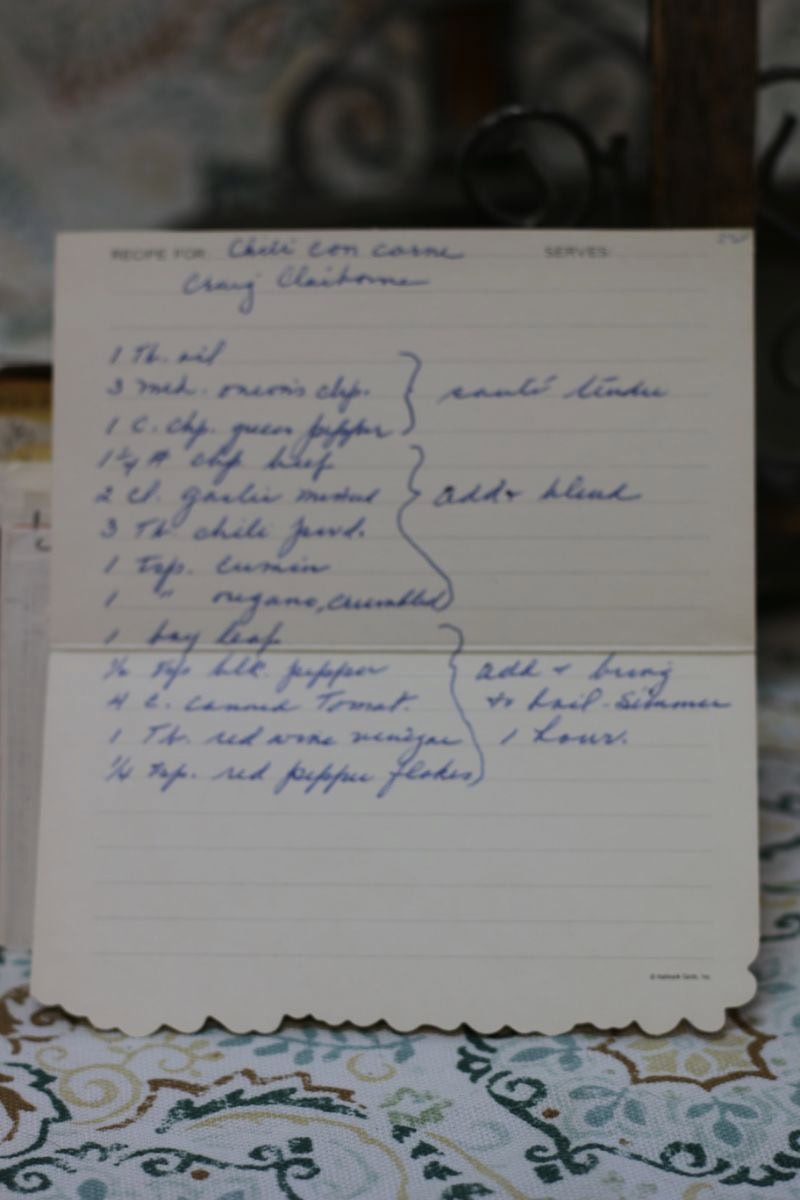 RECIPE FOR: Chili con carne SERVES:
Craig Claiborne
1 Tb. oil
3 med. onions chp. } sauté tender
1 C. chp. green pepper
1 # chp beef
2 cl. garlic minced } add + blend
3 Tb. chili powd.
1 tsp. cumin
1 " oregano, crumbled
1 bay leaf
tsp blk. pepper } add + bring
4 C. canned Tomat. to boil - Simmer
1 Tb. red wine vinegar 1 hour.
1/4 tsp. red pepper flakes
© Hallmark Cards, Inc.